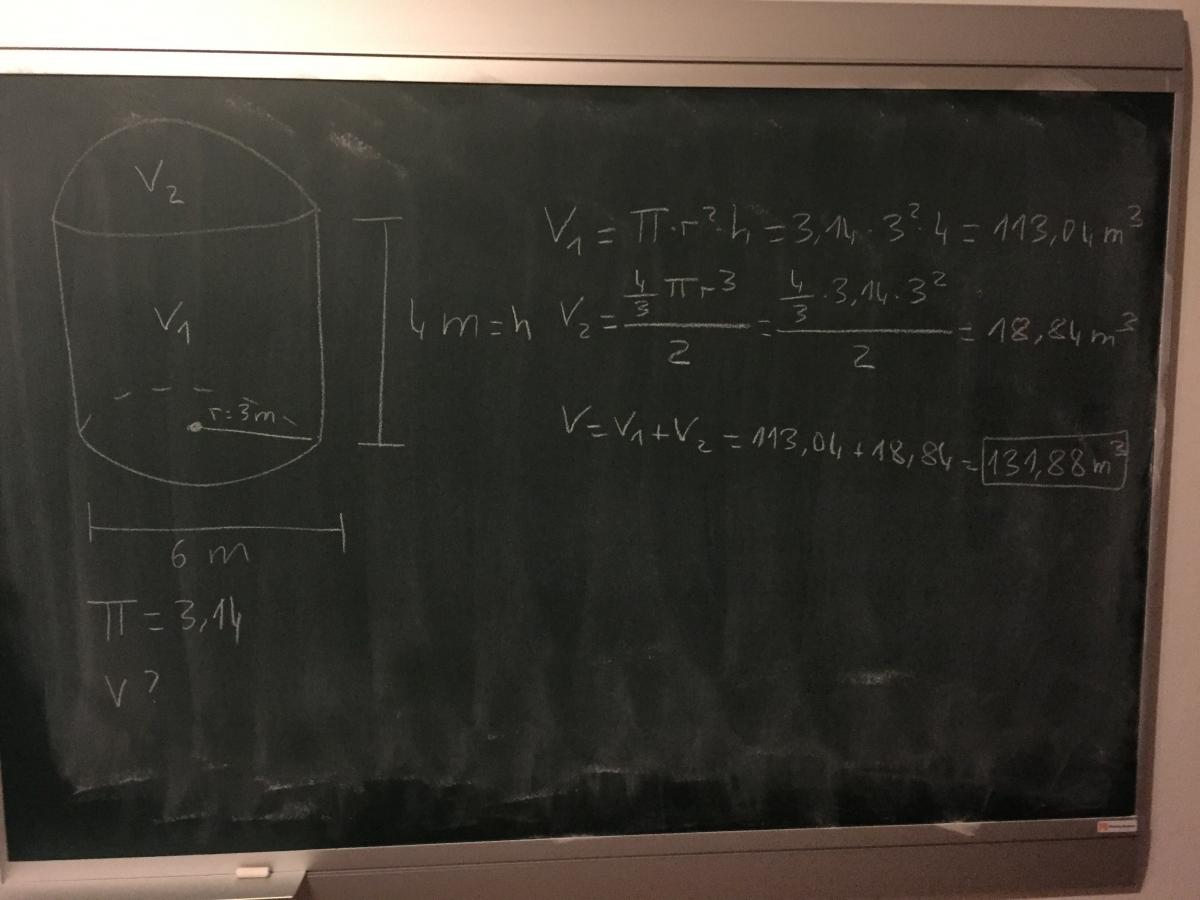 V₂
V₁
r=3m
4 m = h
6 m
π = 3,14
V ?
V₁ = π·r²·h = 3,14·3²·4 = 113,04 m³
V₂ = (4/3 πr³)/2 = (4/3·3,14·3²)/2 = 18,84 m³
V = V₁ + V₂ = 113,04 + 18,84 = 131,88 m³